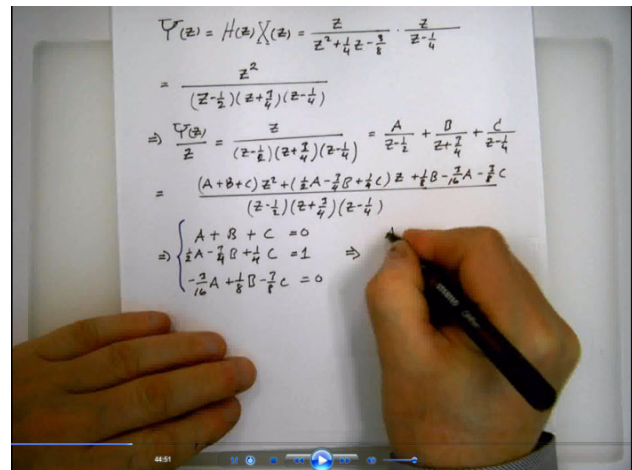 Y(z) = H(z) X(z) = z / (z² + 1/4 z - 3/8) · z / (z - 1/4)
= z² / ((z - 1/2)(z + 3/4)(z - 1/4))
⇒ Y(z)/z = z / ((z - 1/2)(z + 3/4)(z - 1/4)) = A / (z - 1/2) + B / (z + 3/4) + C / (z - 1/4)
= ((A + B + C) z² + (1/2 A - 3/4 B + 1/4 C) z + 1/8 B - 3/16 A - 3/8 C) / ((z - 1/2)(z + 3/4)(z - 1/4))
⇒ { A + B + C = 0
1/2 A - 3/4 B + 1/4 C = 1 ⇒
-3/16 A + 1/8 B - 3/8 C = 0
44:51